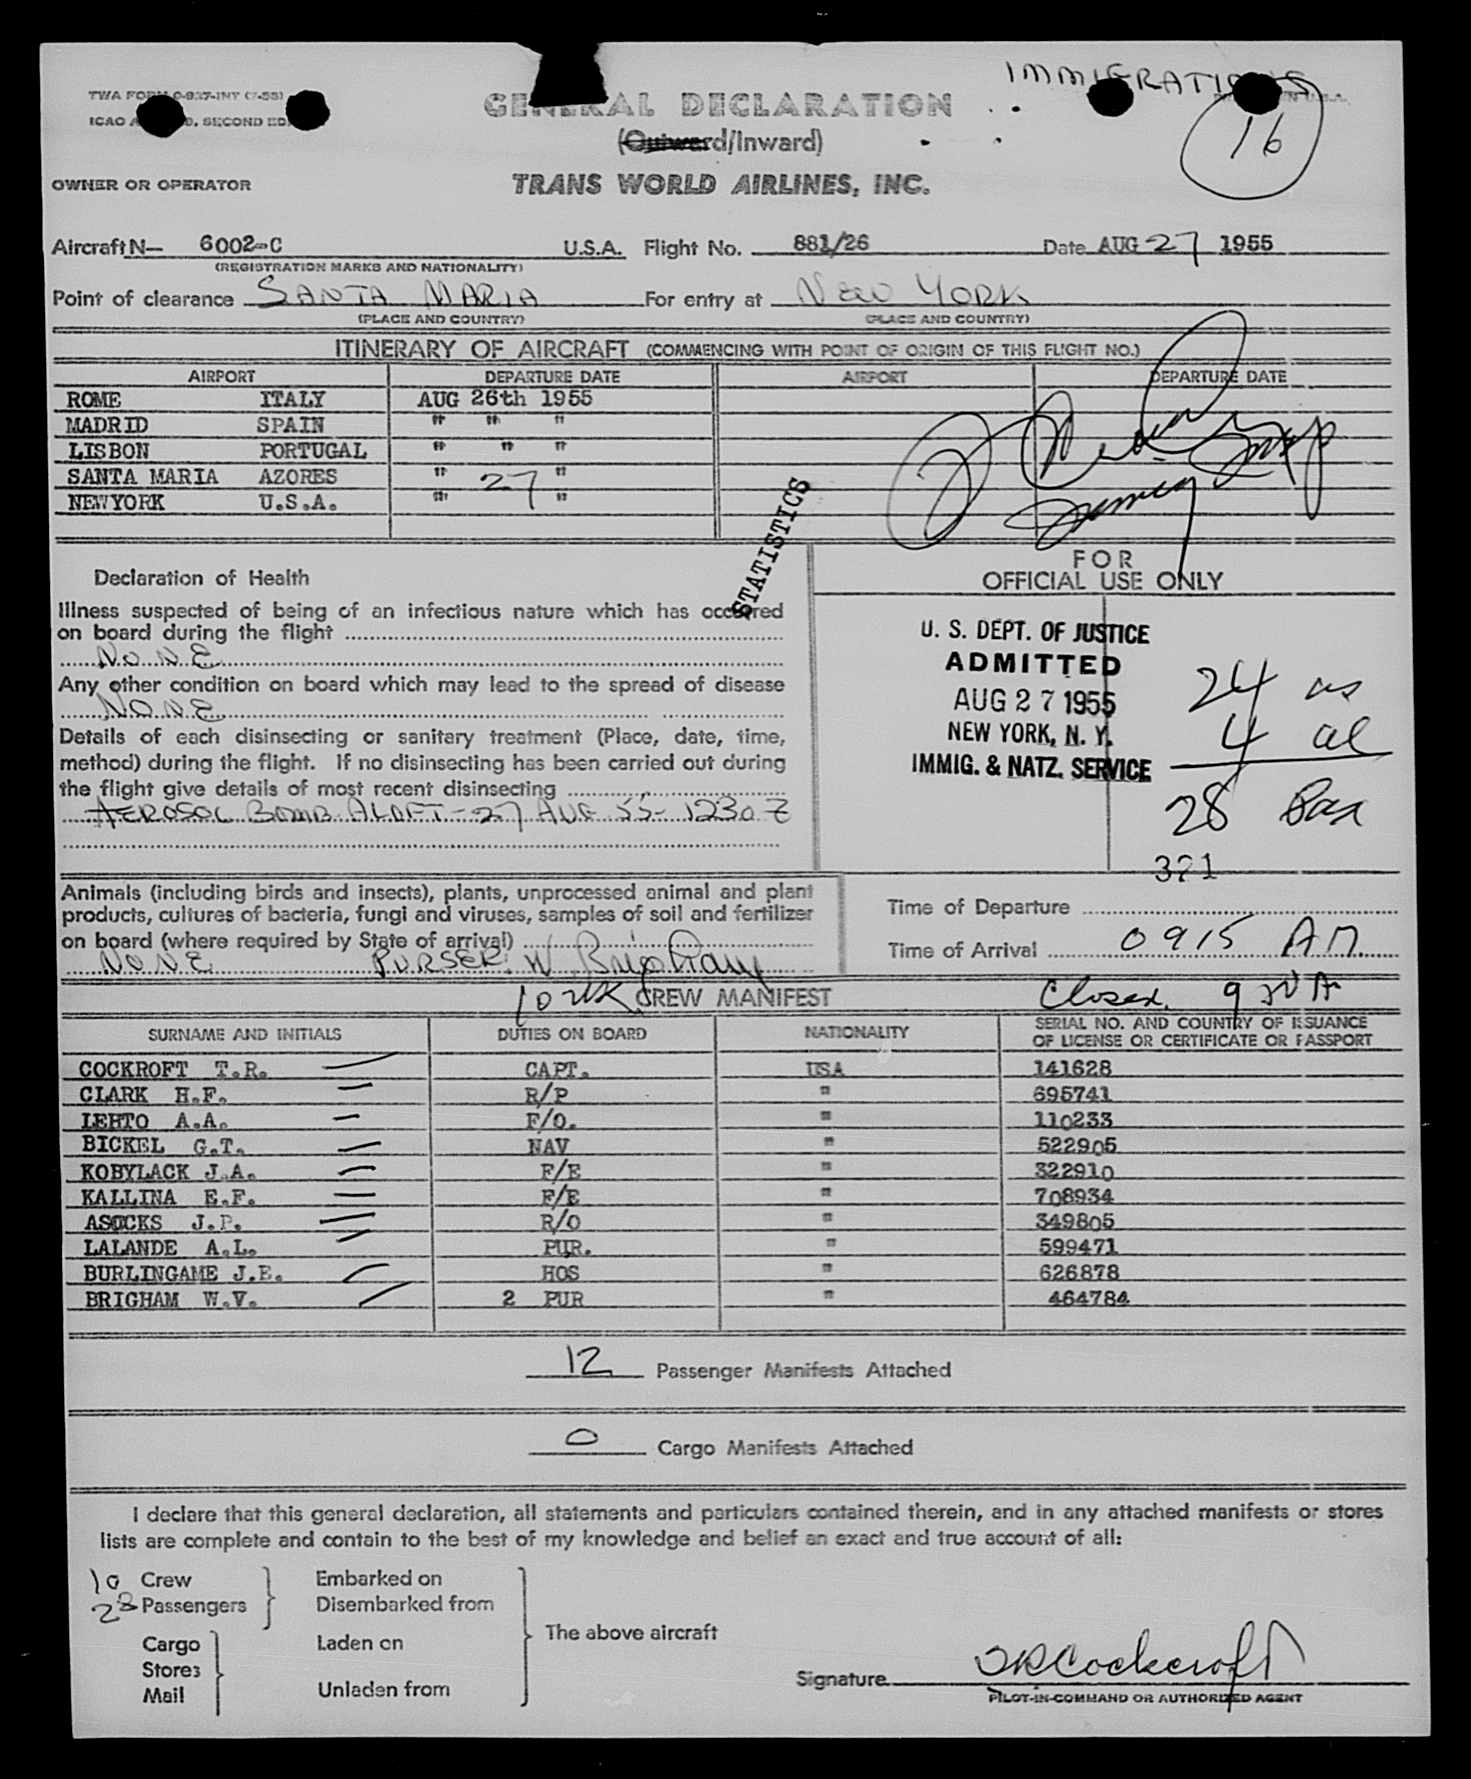 IMMIGRATIONS
TWA FORM O-927-INT (7-55)
GENERAL DECLARATION
ICAO SECOND ED.
16
(Outward/Inward)
OWNER OR OPERATOR
TRANS WORLD AIRLINES, INC.
Aircraft N— 6002-C U.S.A. Flight No. 881/26 Date AUG 27 1955
(REGISTRATION MARKS AND NATIONALITY)
Point of clearance SANTA MARIA For entry at NEW YORK
(PLACE AND COUNTRY) (PLACE AND COUNTRY)
ITINERARY OF AIRCRAFT (COMMENCING WITH POINT OF ORIGIN OF THIS FLIGHT NO.)
AIRPORT DEPARTURE DATE AIRPORT DEPARTURE DATE
ROME ITALY AUG 26th 1955
MADRID SPAIN " " "
LISBON PORTUGAL " " "
SANTA MARIA AZORES " 27 "
NEWYORK U.S.A. " "
STATISTICS
FOR
OFFICIAL USE ONLY
Declaration of Health
Illness suspected of being of an infectious nature which has occurred
on board during the flight
NONE
Any other condition on board which may lead to the spread of disease
NONE
Details of each disinsecting or sanitary treatment (Place, date, time,
method) during the flight. If no disinsecting has been carried out during
the flight give details of most recent disinsecting
AEROSOL BOMB ALOFT - 27 AUG 55 - 1230Z
U. S. DEPT. OF JUSTICE
ADMITTED
AUG 27 1955
NEW YORK, N. Y.
IMMIG. & NATZ. SERVICE
24 us
4 al
28 Pax
321
Animals (including birds and insects), plants, unprocessed animal and plant
products, cultures of bacteria, fungi and viruses, samples of soil and fertilizer
on board (where required by State of arrival)
NONE PURSER W Brigham
Time of Departure
Time of Arrival 0915 AM
10 CREW MANIFEST
Closed
SURNAME AND INITIALS DUTIES ON BOARD NATIONALITY SERIAL NO. AND COUNTRY OF ISSUANCE
OF LICENSE OR CERTIFICATE OR PASSPORT
COCKROFT T.R. CAPT. USA 141628
CLARK H.F. R/P " 695741
LEHTO A.A. F/O. " 110233
BICKEL G.T. NAV " 522905
KOBYLACK J.A. F/E " 322910
KALLINA E.F. F/E " 708934
ASOCKS J.P. R/O " 349805
LALANDE A.L. PUR. " 599471
BURLINGAME J.E. HOS " 626878
BRIGHAM W.V. 2 PUR " 464784
12 Passenger Manifests Attached
0 Cargo Manifests Attached
I declare that this general declaration, all statements and particulars contained therein, and in any attached manifests or stores
lists are complete and contain to the best of my knowledge and belief an exact and true account of all:
10 Crew Embarked on
28 Passengers Disembarked from
The above aircraft
Cargo Laden on
Stores
Mail Unladen from
Signature TR Cockcroft
PILOT-IN-COMMAND OR AUTHORIZED AGENT